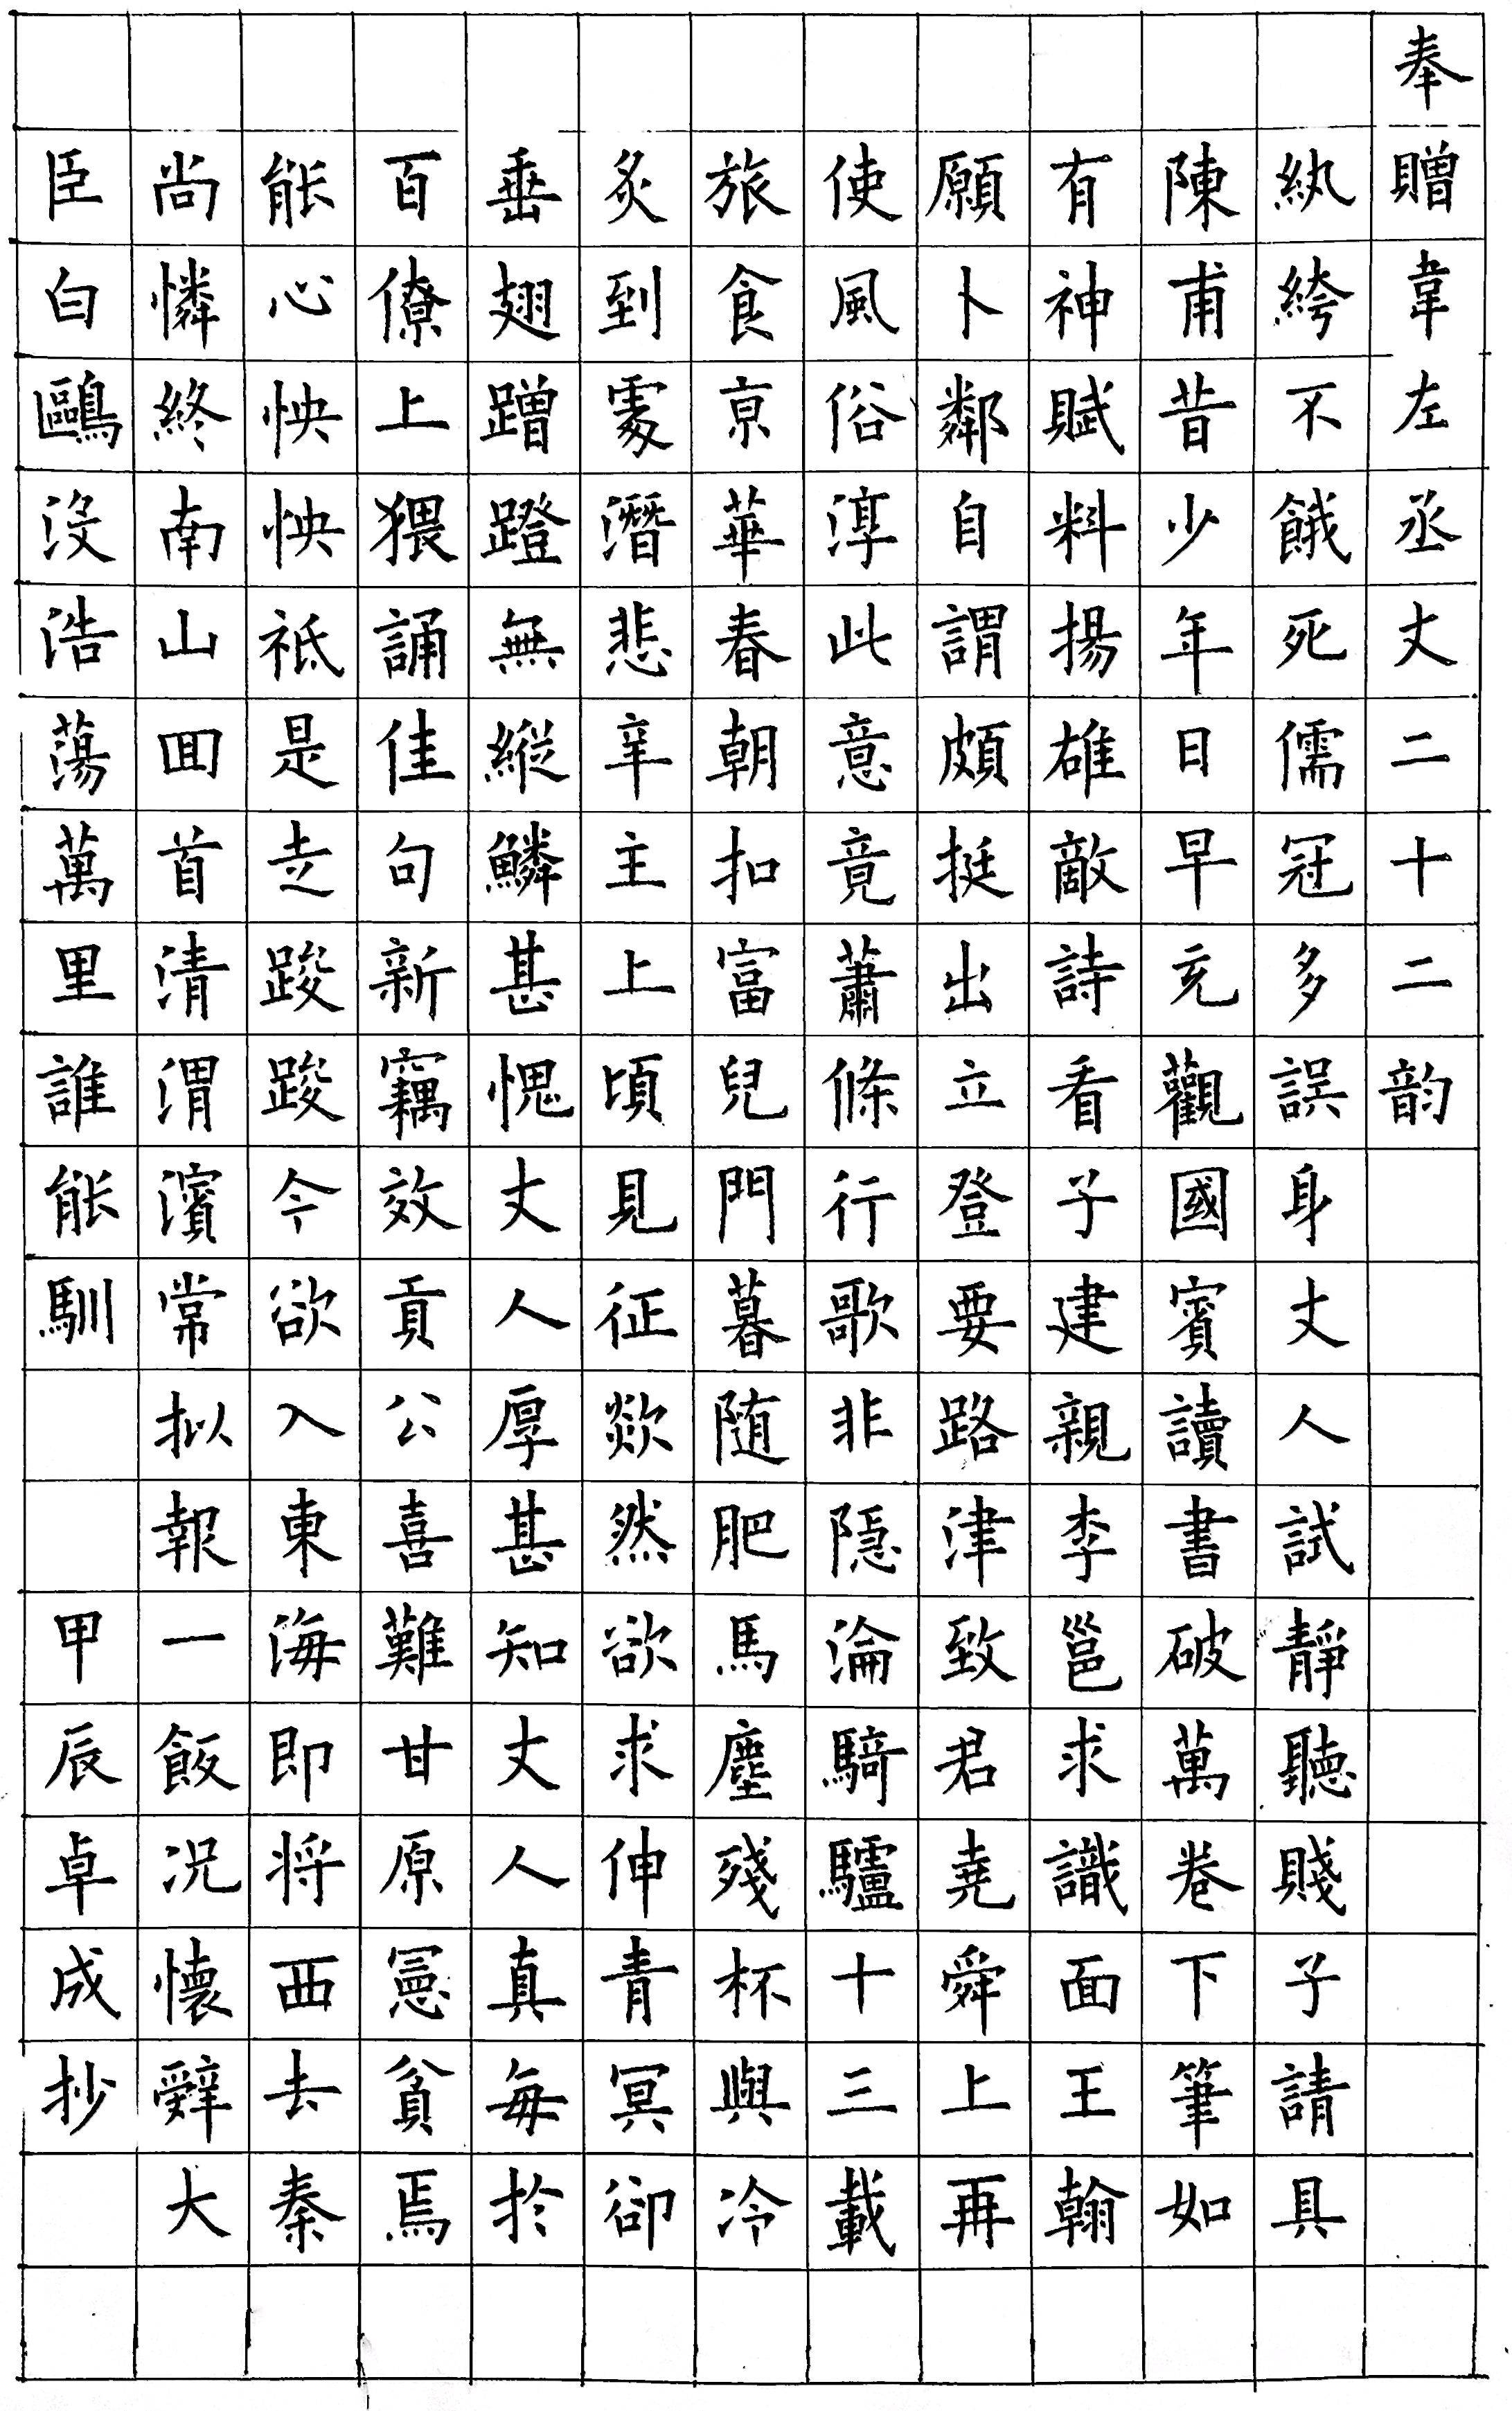 奉贈韋左丞丈二十二韵
紈絝不餓死儒冠多誤身丈人試靜聽賤子請具
陳甫昔少年日早充觀國賓讀書破萬卷下筆如
有神賦料揚雄敵詩看子建親李邕求識面王翰
願卜鄰自謂頗挺出立登要路津致君堯舜上再
使風俗淳此意竟蕭條行歌非隱淪騎驢十三載
旅食京華春朝扣富兒門暮随肥馬塵殘杯與冷
炙到處潛悲辛主上頃見征欻然欲求伸青冥卻
垂翅蹭蹬無縱鱗甚愧丈人厚甚知丈人真每於
百僚上猥誦佳句新竊效貢公喜難甘原憲貧焉
能心怏怏祗是走踆踆今欲入東海即将西去秦
尚憐終南山回首清渭濱常拟報一飯況懷辭大
臣白鷗沒浩蕩萬里誰能馴
甲辰卓成抄